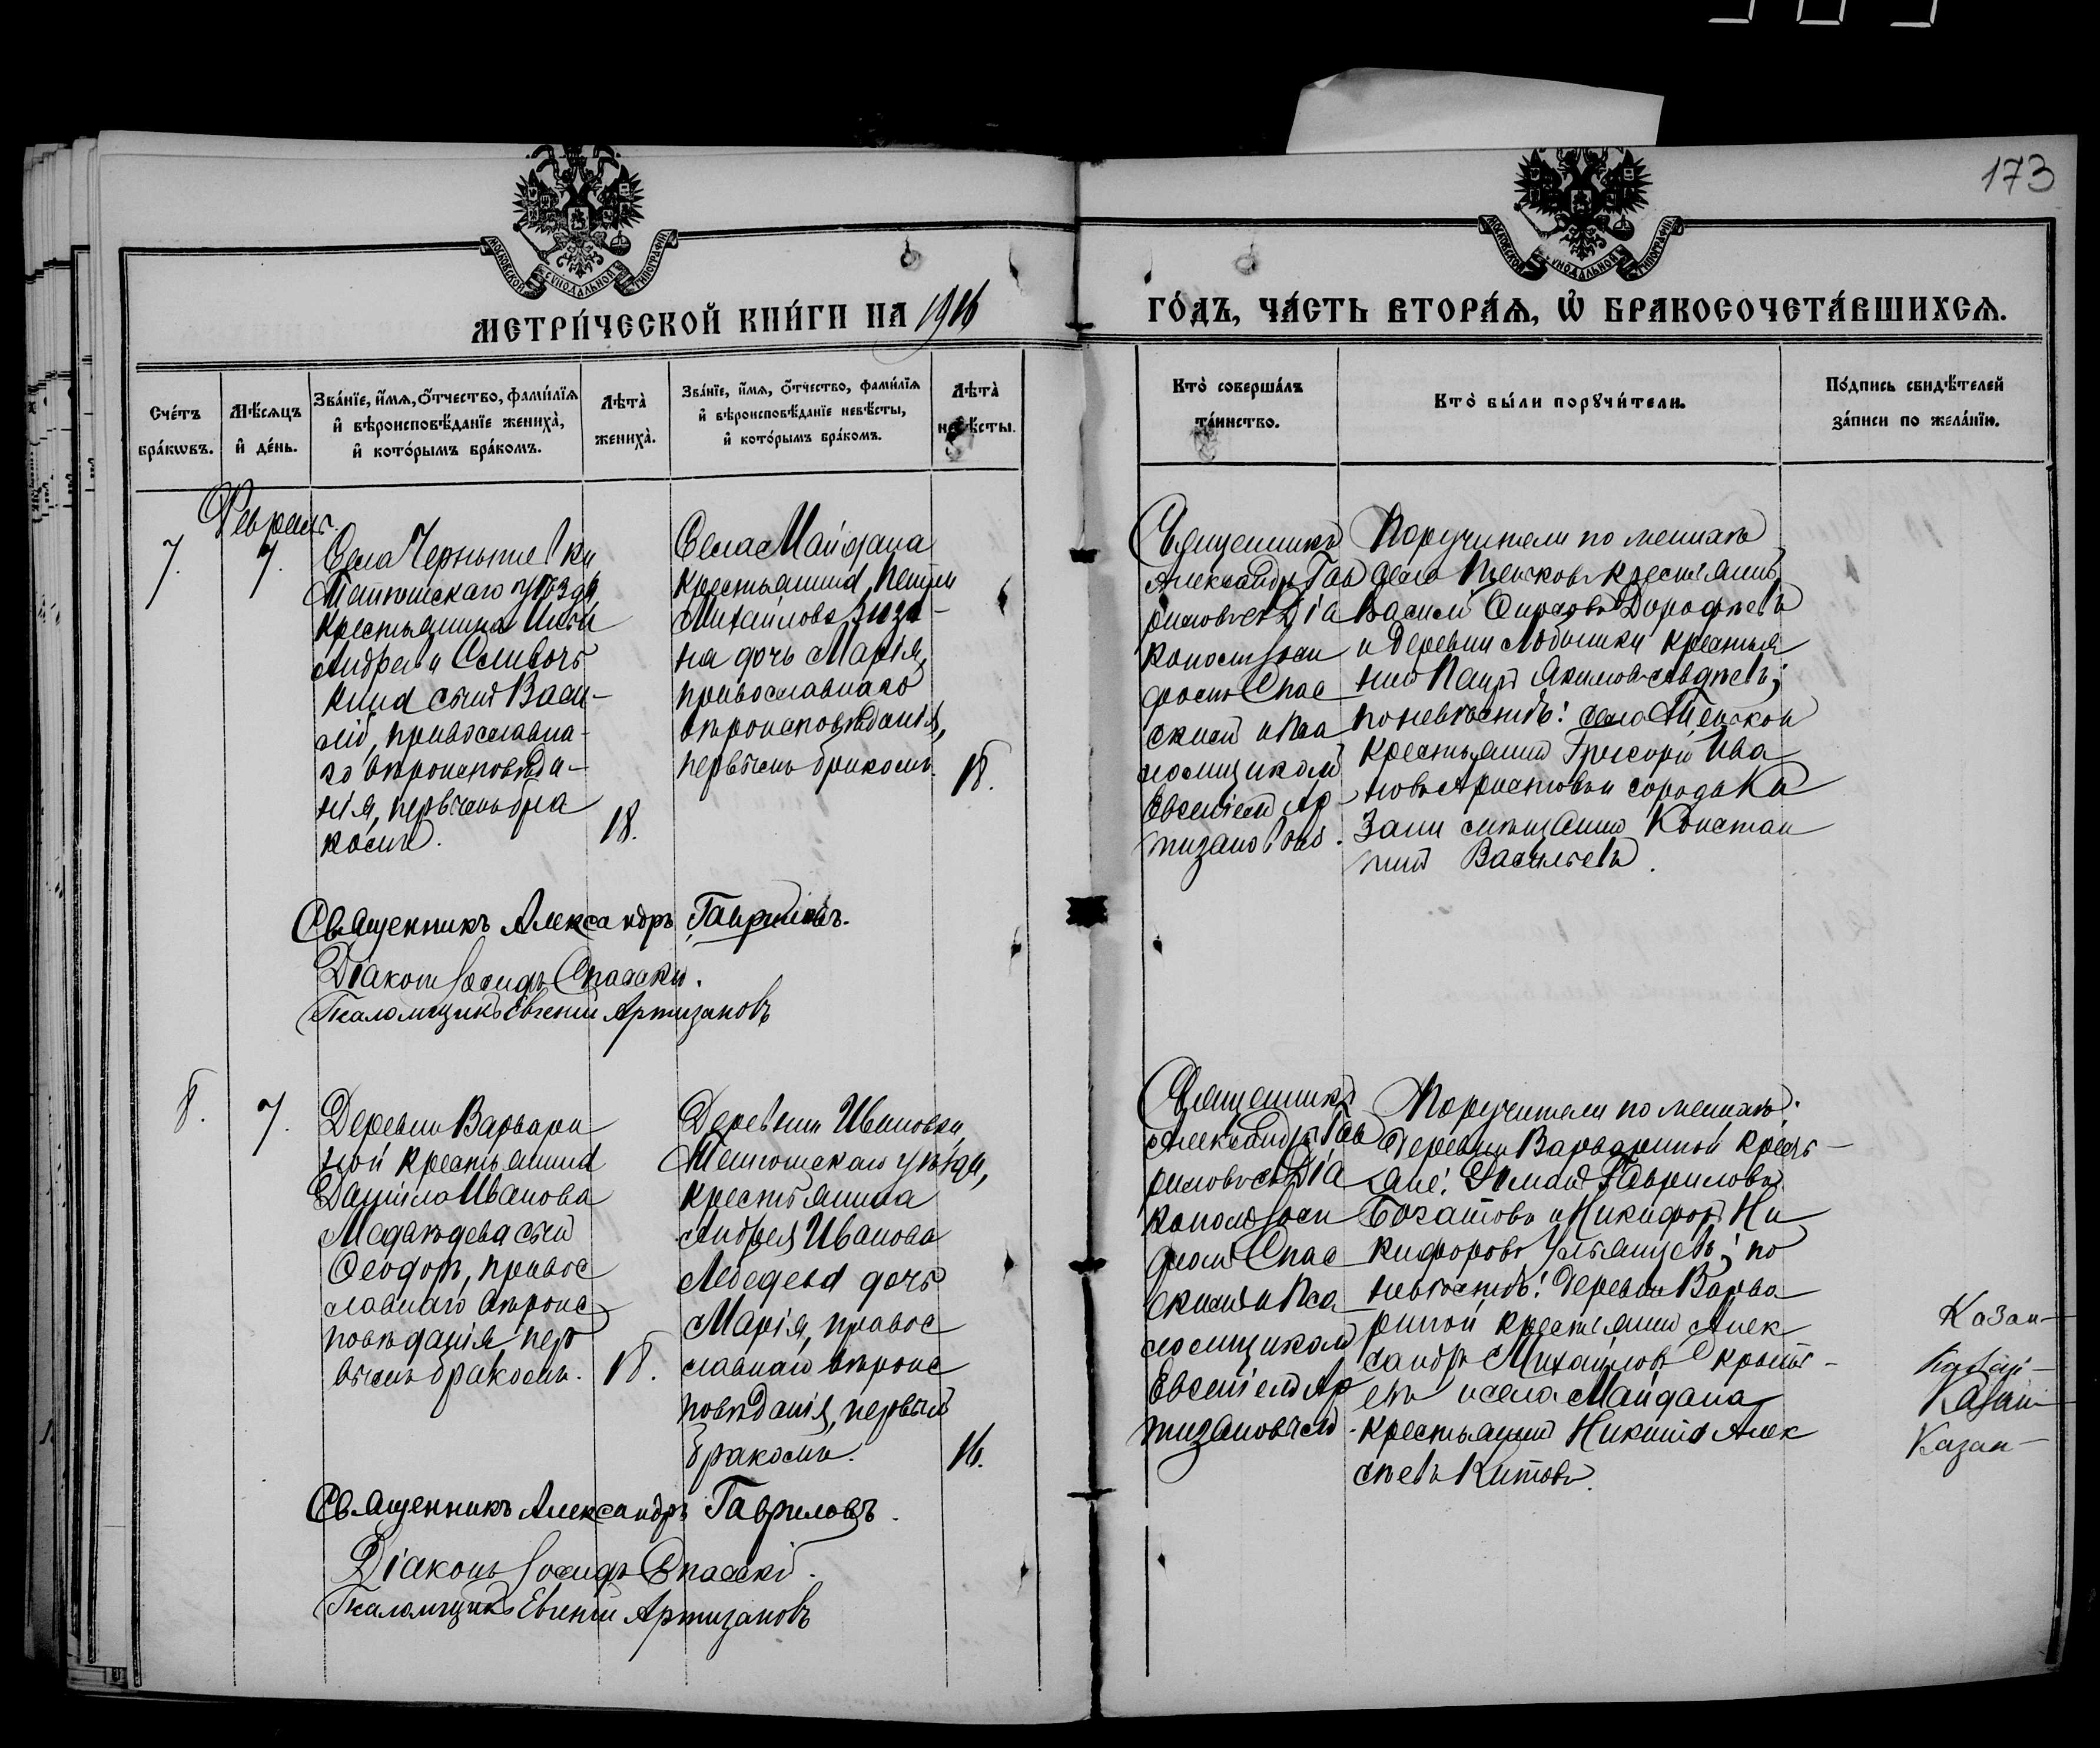 173
МОСКОВСКОЙ СѴНОДАЛЬНОЙ ТИПОГРАФІИ
МОСКОВСКОЙ СѴНОДАЛЬНОЙ ТИПОГРАФІИ
МЕТРИ́ЧЕСКОЙ КНИ́ГИ НА 1916
ГО́ДЪ, ЧА́СТЬ ВТОРА́Ѧ, Ѽ БРАКОСОЧЕТА́ВШИХСѦ.
Сче́тъ
бра́кѡвъ.
Мѣ́сѧцъ
и҆ де́нь.
Зва́нїе, и҆́мѧ, ѻ҆́тчество, фами́лїѧ
и҆ вѣроисповѣ́данїе жениха̀,
и҆ кото́рымъ бра́комъ.
Лѣ́та̀
жениха̀.
Зва́нїе, и҆́мѧ, ѻ҆́тчество, фами́лїѧ
и҆ вѣроисповѣ́данїе невѣ́сты,
и҆ кото́рымъ бра́комъ.
Лѣ́та̀
невѣ́сты.
Кто̀ соверша́лъ
та́инство.
Кто̀ бы́ли порꙋчи́тели.
По́дпись свидѣ́телей
за́писи по жела́нїю.
Февраль.
7.
7.
Села
Тетюшскаго уѣзда
крестьянина
Андреева
кина сынъ Васи-
лій, православна-
го вѣроисповѣда-
нія, первымъ бра
комъ.
18.
Села Майдана
крестьянина Петра
Михайлова
на дочь Марія,
православнаго
вѣроисповѣданія,
первымъ бракомъ.
18.
Священникъ
Александръ Гав
риловъ съ Діа
кономъ Іоси
фомъ Спас
скимъ и Пса
ломщикомъ
Евгеніемъ Ар
тизановымъ.
Поручители по женихѣ
села крестьянинъ
Василій Дорофѣевъ
и деревни Лобышки крестья
нинъ Акимовъ Авдѣевъ;
по невѣстѣ: села
крестьянинъ Григорій Ива
новъ и города Ка
зани мѣщанинъ Констан
тинъ Васильевъ.
Священникъ Александръ Гавриловъ.
Діаконъ Іосифъ Спасскій.
Псаломщикъ Евгеній Артизановъ
8.
7.
Деревни Варвари
ной крестьянина
Даніила Иванова
Медвѣдева сынъ
Ѳеодоръ, правос
лавнаго вѣроис
повѣданія, пер
вымъ бракомъ.
18.
Деревни Ивановки,
Тетюшскаго уѣзда,
крестьянина
Андрея Иванова
Лебедева дочь
Марія, правос
лавнаго вѣроис
повѣданія, первымъ
бракомъ.
16.
Священникъ
Александръ Гав
риловъ съ Діа
кономъ Іоси
фомъ Спас
скимъ и Пса
ломщикомъ
Евгеніемъ Ар
тизановымъ.
Поручители по женихѣ:
деревни Варвариной кресть-
яне: Романъ Гавриловъ
Богатовъ и Никифоръ Ни
кифоровъ Ульянцевъ; по
невѣстѣ: деревни Варва
риной крестьянинъ Алек
сандръ Михайловъ
и села Майдана
крестьянинъ Никита Алек
сѣевъ Китовъ.
Казан-
Казан-
Казан-
Казан-
Священникъ Александръ Гавриловъ.
Діаконъ Іосифъ Спасскій.
Псаломщикъ Евгеній Артизановъ